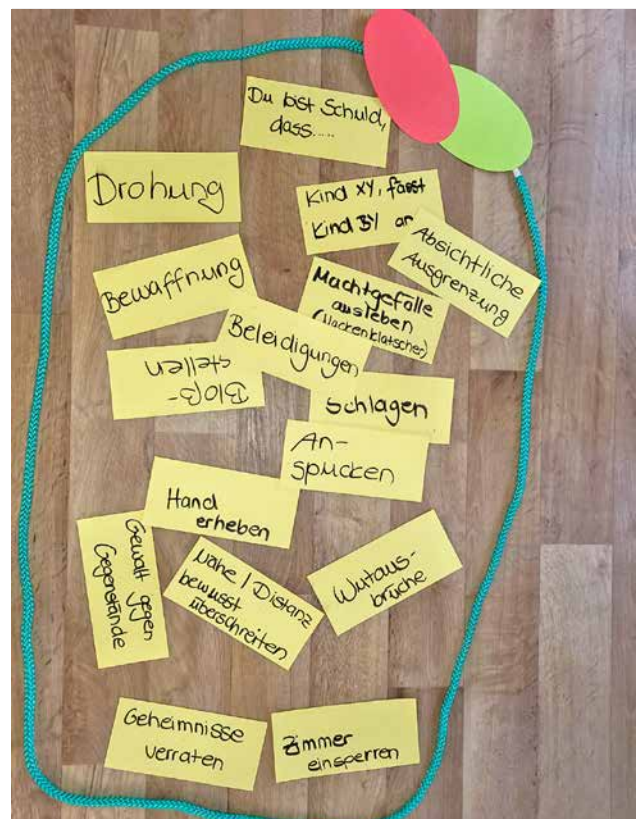 Du bist Schuld,
dass.....
Drohung
Kind XY, fässt
Kind BY an
Absichtliche
Ausgrenzung
Bewaffnung
Machtgefälle
ausleben
(Nackenklatscher)
Beleidigungen
Bloß-
stellen
Schlagen
An-
spucken
Hand
erheben
Gewalt gegen
Gegenstände
Nähe / Distanz
bewusst
überschreiten
Wutaus-
brüche
Geheimnisse
verraten
Zimmer
einsperren